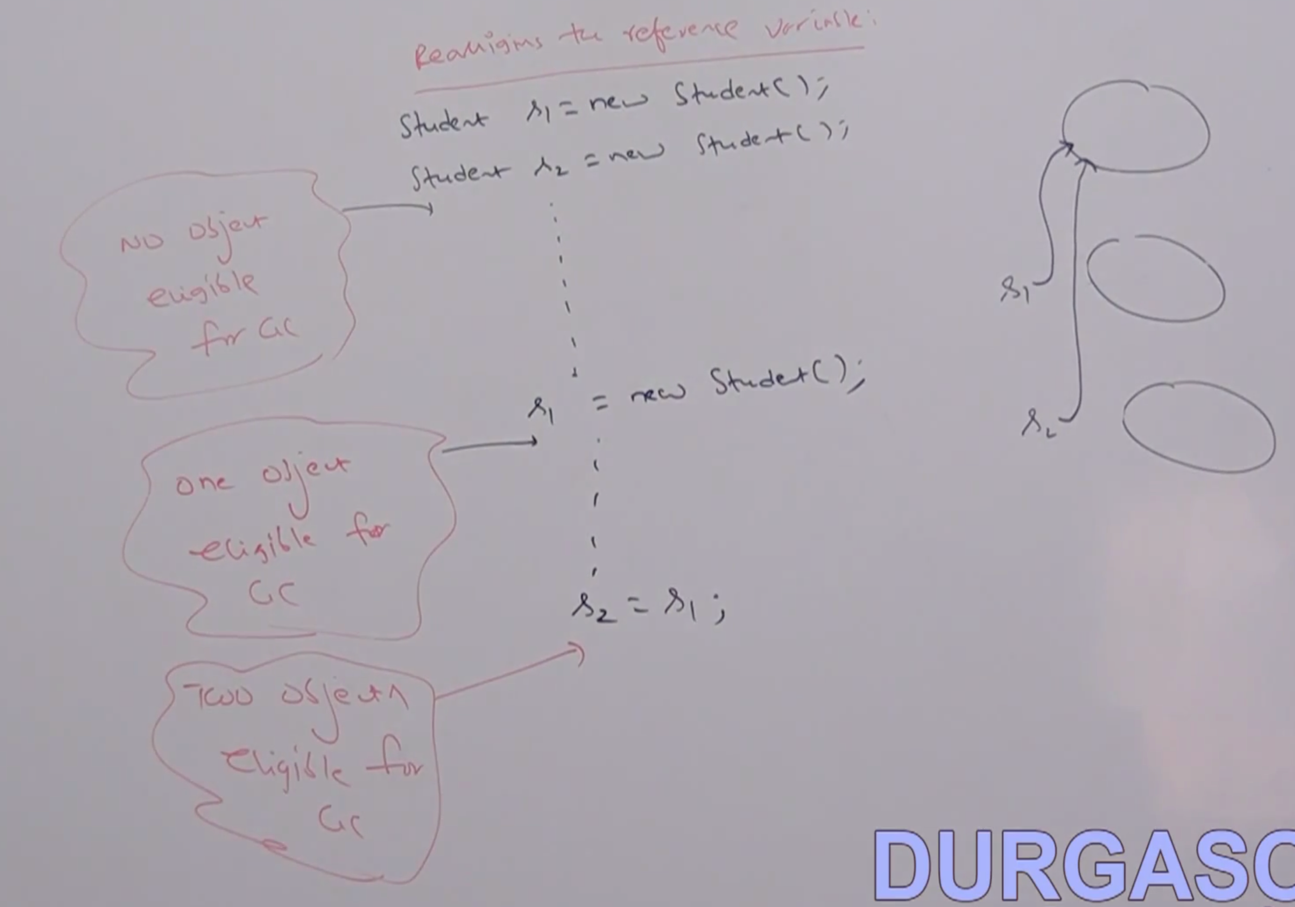 Reassigning the reference variable:
Student s1 = new Student();
Student s2 = new Student();
NO object
eligible
for GC
s1 = new Student();
one object
eligible for
GC
s2 = s1;
Two objects
eligible for
GC
s1
s2
DURGASO